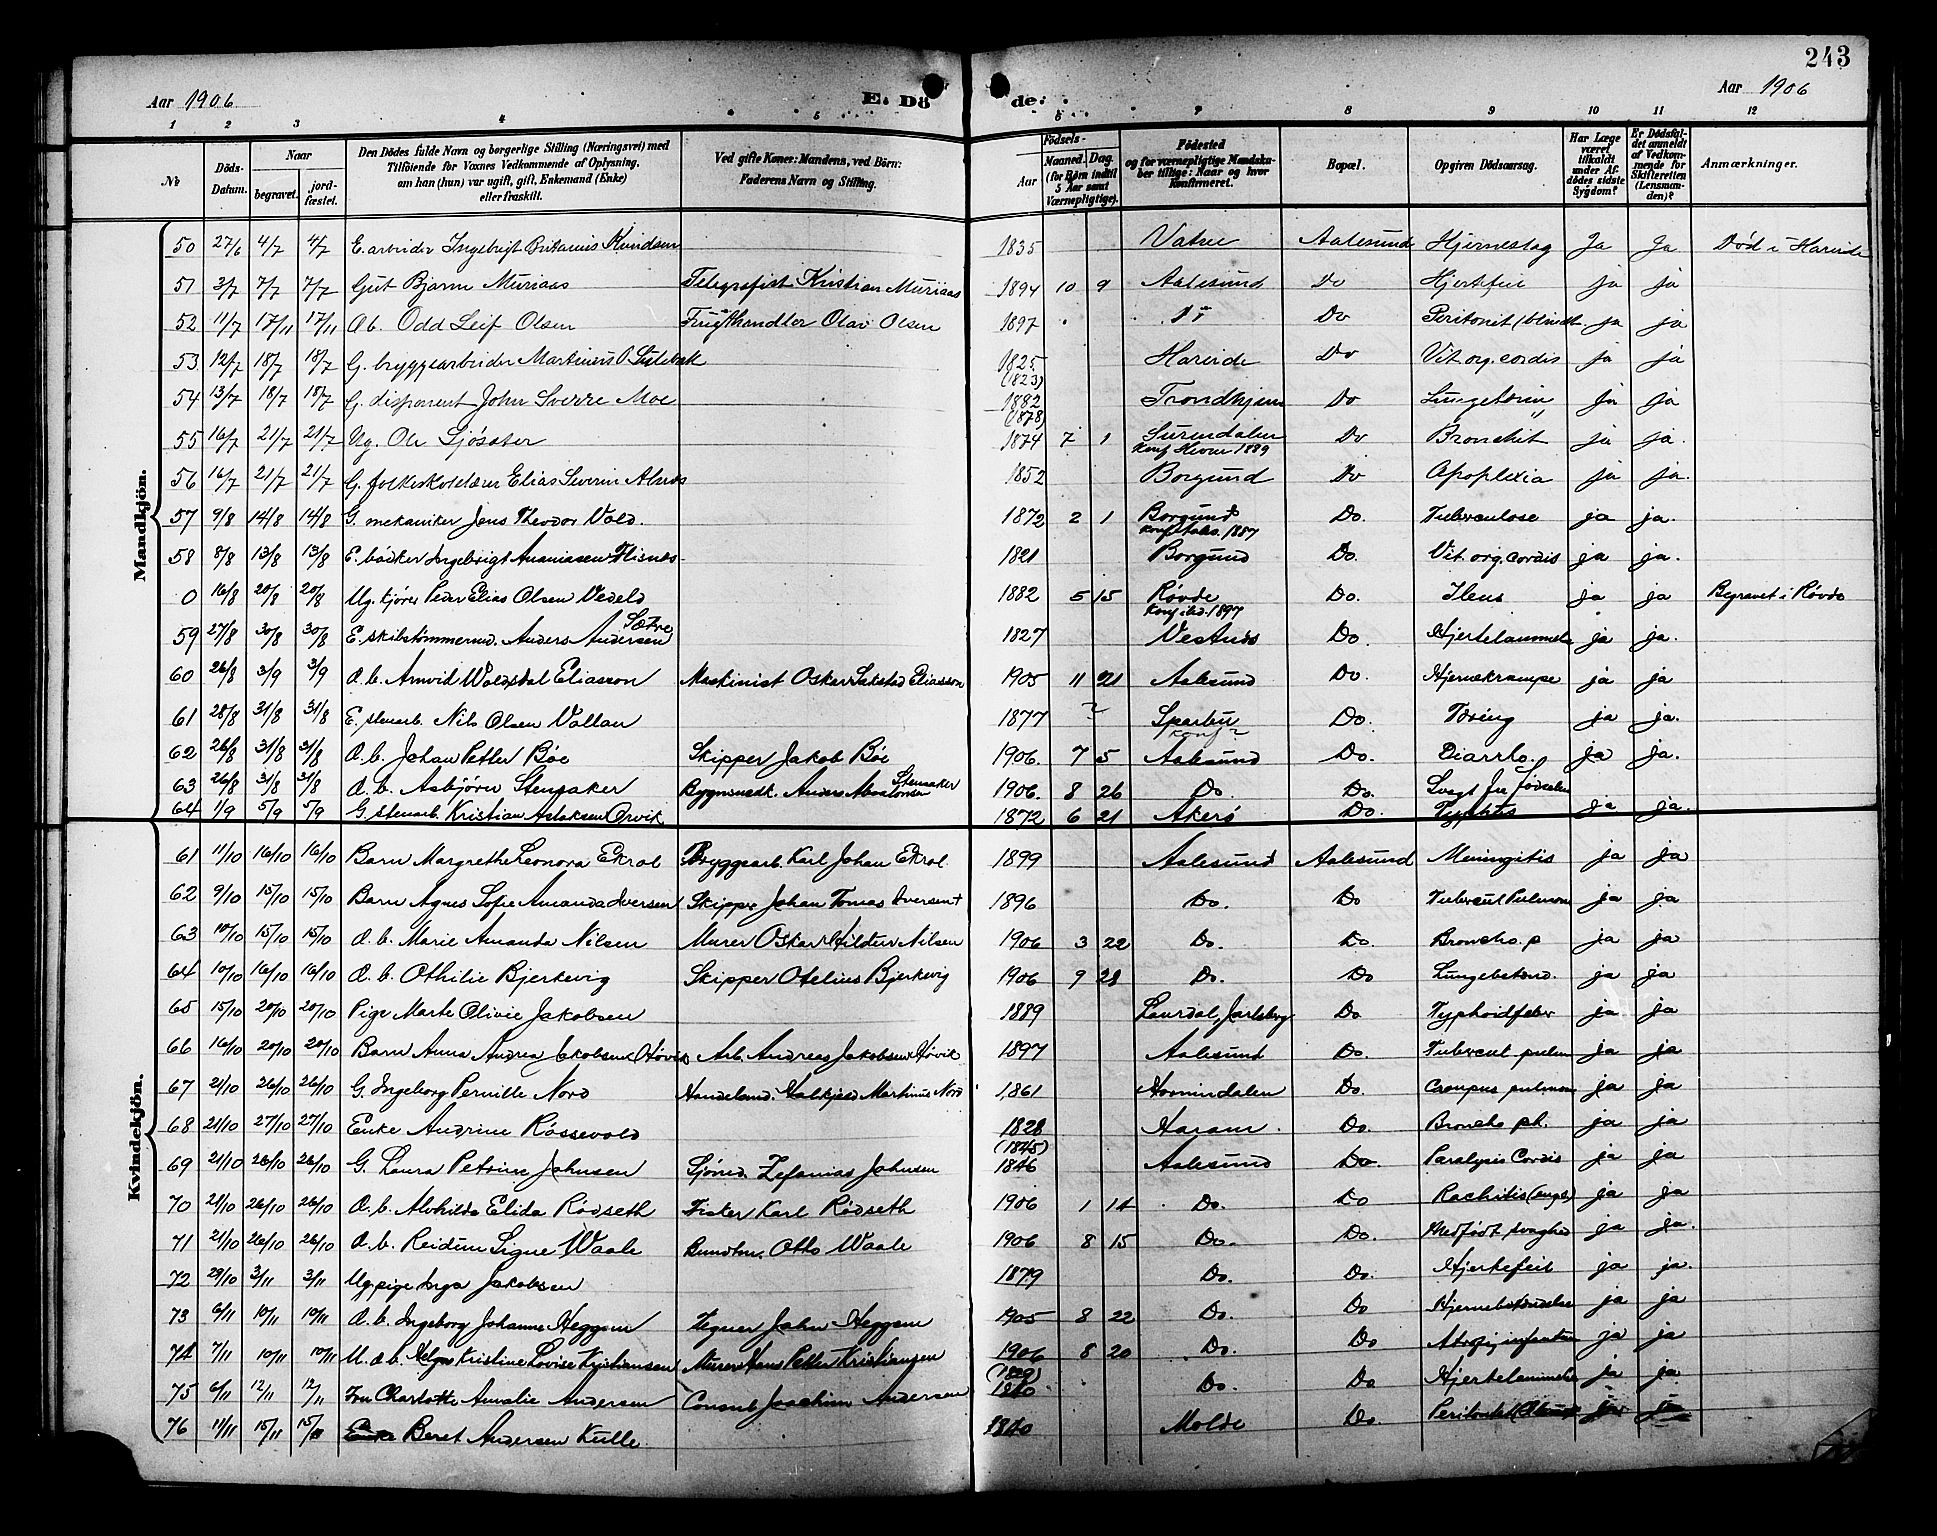 243
Aar 1906 E. Dö de: Aar 1906
1 2 3 4 5 6 7 8 9 10 11 12
№ Döds-Datum. Naar begravet. jord-fæstet. Den Dödes fulde Navn og borgerlige Stilling (Næringsvei) med Tilföiende for Voxnes Vedkommende af Oplysning, om han (hun) var ugift, gift, Enkemand (Enke) eller fraskilt. Ved gifte Koner: Mandens, ved Börn: Faderens Navn og Stilling. Födsels- Aar Maaned. Dag. (for Börn indtil 5 Aar samt Værnepligtige). Födested og for værnepligtige Mandskaber tillige: Naar og hvor Konfirmeret. Bopæl. Opgiven Dödsaarsag. Har Læge været tilkaldt under Afdödes sidste Sygdom? Er Dödsfaldet anmeldt af Vedkommende for Skifteretten (Lensmanden)? Anmærkninger.
Mandkjön.
50 27/6 4/7 4/7 E. arbeider Ingebrigt Britanius Knudsen 1835 Vatne Aalesund Hjerneslag Ja Ja Död i Hareide
51 3/7 7/7 7/7 Gut Bjarne Muriaas Telegrafist Kristian Muriaas 1894 10 9 Aalesund Do Hjertefeil ja ja
52 11/7 17/11 17/11 Ab. Odd Leif Olsen Frugthandler Olav Olsen 1897 Do Peritonit (blindt. ja ja
53 12/7 18/7 18/7 G. bryggearbeider Martinus O. Sulebak 1825 (1823) Hareide Do Vit. org. cordis ja ja
54 13/7 18/7 18/7 G. disponent John Sverre Moe 1882 (1878) Trondhjem Do Lungetæring ja ja
55 16/7 21/7 21/7 Ug. Ole Sjösæter 1874 7 1 Surendalen Konf. 1889 Do Bronchit ja ja.
56 16/7 21/7 21/7 G. folkeskolelærer Elias Severin Alnæs 1852 Borgund Do Apoplexia ja ja.
57 9/8 14/8 14/8 G. mekaniker Jens Theodor Vold. 1872 2 1 Borgund Konf. Aales. 1887 Do. Tuberculose ja ja.
58 8/8 13/8 13/8 E. bödker Ingebrigt Ananiassen Flisnes 1821 Borgund Do. Vit. org. cordis ja ja.
0 16/8 20/8 20/8 Ug. kjörer Peder Elias Olsen Vedeld 1882 5 15 Røvde Konf. ibd. 1897 Do. Ileus ja ja Begravet i Røvde
59 27/8 30/8 30/8 E. skibstømmermd. Anders Andersen Sætre 1827 Vestnæs Do. Hjertelammelse ja ja.
60 26/8 3/9 3/9 d. b. Arnvid Waldsdal Eliasson Maskinist Oskar Eliasson 1905 11 21 Aalesund Do. Hjernekrampe ja ja
61 28/8 31/8 31/8 E. stenarb. Nils Olsen Vallan 1877 ? Sparbu Konf? Do. Tæring ja ja.
62 26/8 31/8 31/8 d. b. Johan Petter Bøe Skipper Jakob Bøe 1906. 7 5 Aalesund Do. Diarrho. ja ja.
63 26/8 31/8 31/8 d. b. Asbjörn Stensaker Bygmsnedk. Anders Stensaker 1906. 8 26 Do. Do. Svagt fra födselen
64 1/9 5/9 5/9 G. stenarb. Kristian Aslaksen Orvik 1872 6 21 Akerø Do. Typhus ja ja.
Kvindekjön.
61 11/10 16/10 16/10 Barn Margrethe Leonora Ekrol Bryggearb. Karl Johan Ekrol 1899 Aalesund Aalesund Meningitis ja ja
62 9/10 15/10 15/10 Barn Agnes Sofie Amanda Iversen Skipper Johan Tomas Iversen 1896 Do. Do Tubercul Pulmon ja ja
63 10/10 15/10 15/10 d. b. Marie Amanda Nilsen Murer Oskar Hildur Nilsen 1906 3 22 Do. Do. Broncho. p ja ja
64 10/10 16/10 16/10 d. b. Othilie Bjerkevig Skipper Otelius Bjerkevig 1906 9 28 Do. Do Lungebetænd. ja ja
65 15/10 20/10 20/10 Pige Marte Olivie Jakobsen 1889 Laurdal, Jarlsberg Do Typhoidfeber ja ja
66 16/10 20/10 20/10 Barn Anna Andrea Jakobsen Høvik Arb. Andreas Jakobsen Høvik 1897 Aalesund Do. Tubercul. pulm ja ja
67 21/10 26/10 26/10 G. Ingeborg Pernille Nord Handelsmd. Halkjeld Martinus Nord 1861 Hornindalen Do. Croupus pulmon ja ja
68 21/10 27/10 27/10 Enke Andrine Rössevold 1828 Haram. Do. Broncho ph. ja ja
69 21/10 26/10 26/10 G. Laura Petrine Johnsen Sjömd. Zefanias Johnsen (1845) 1846 Aalesund Do. Paralysis Cordis ja ja
70 21/10 26/10 26/10 d. b. Alvhilde Elida Rödseth Fisker Karl Rödseth 1906 1 14 Do. Do Rachitis (engl.) ja ja
71 21/10 26/10 26/10 d. b. Reidun Signe Waale Buntm. Otto Waale 1906 8 15 Do. Do. Medfödt svaghed ja ja.
72 29/10 3/11 3/11 Ug. pige Inga Jakobsen 1879 Do. Do. Hjertefeil ja ja.
73 6/11 10/11 10/11 d. b. Ingeborg Johanne Heggem Tegner John Heggem 1905 8 22 Do. Do Hjernebetændelse ja ja
74 7/11 10/11 10/11 U. d. b. Helga Kristine Lovise Kristiansen Murer Jens Petter Kristiansen 1906 8 20 Do. Do Atrofi infantum ja ja
75 6/11 12/11 12/11 Fru Charlotte Amalie Andersen Consul Joachim Andersen 1840 Do. Do Hjertelammelse ja ja
76 11/11 15/11 15/11 Enke Beret Andersen Kulle. 1840 Molde Do Peritonitis ja ja